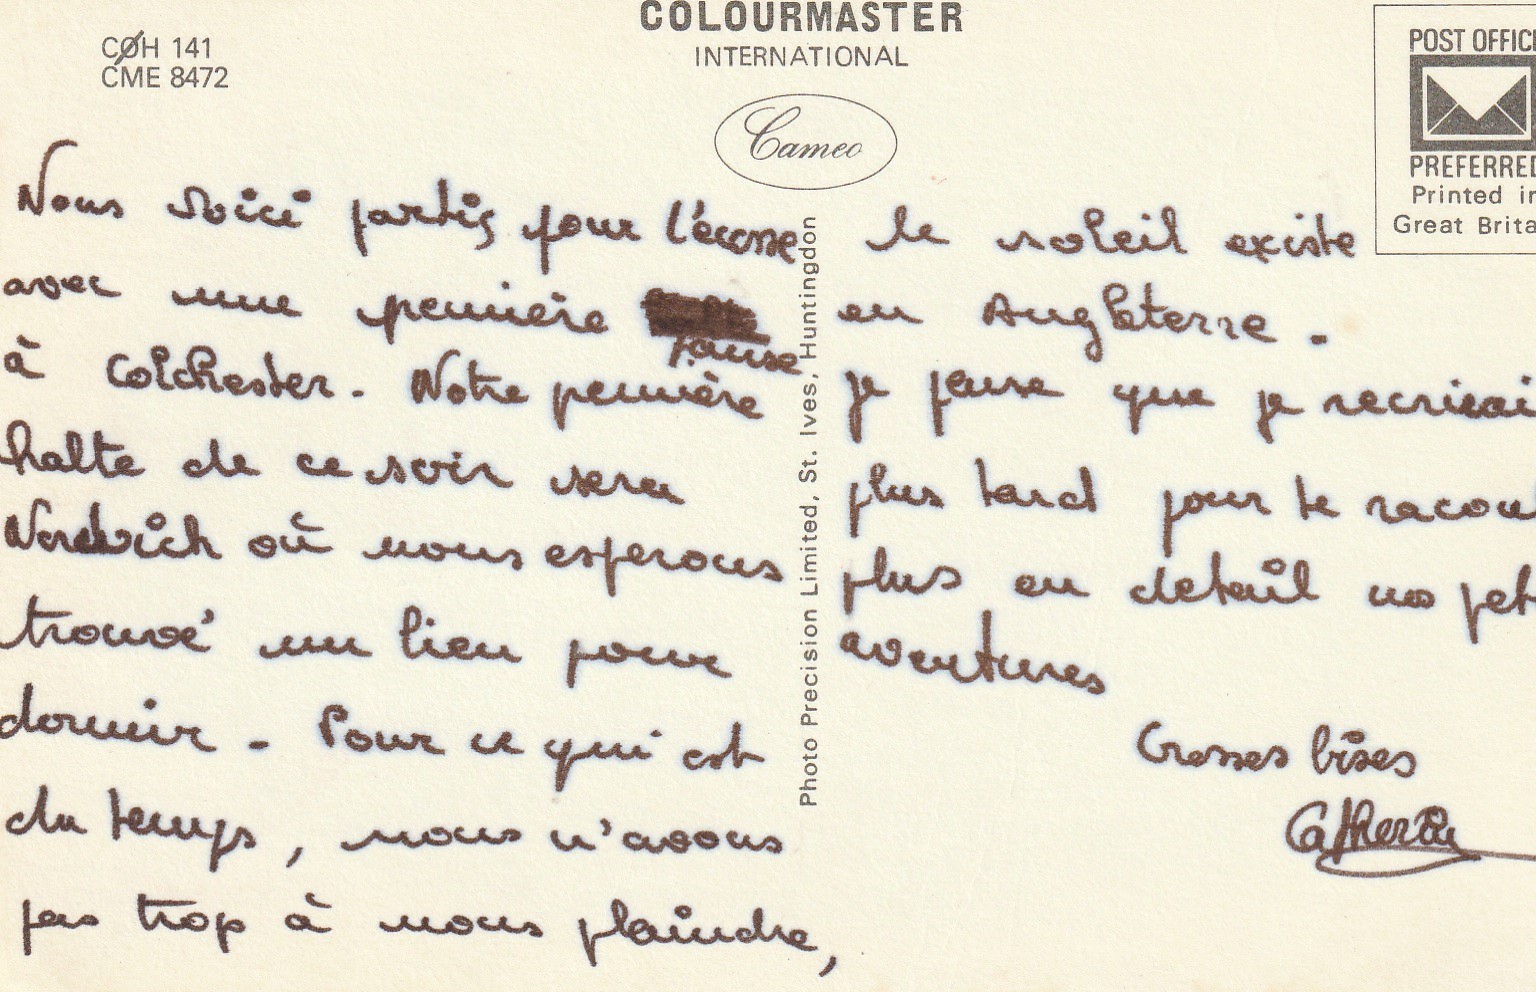 COLOURMASTER
INTERNATIONAL
COH 141
CME 8472
Cameo
POST OFFIC
PREFERRED
Printed in
Great Brita
Nous voici partis pour l'écosse
avec une première
pause
à Colchester. Notre première
halte de ce soir sera
Nordwich où nous esperons
trouvé un lieu pour
dormir - Pour ce qui est
du temps, nous n'avons
pas trop à nous plaindre,
Photo Precision Limited, St. Ives, Huntingdon
le soleil existe
en Angleterre.
je pense que je recrierai
plus tard pour te racont
plus en detail nos pet
aventures
Grosses bises
Catherine